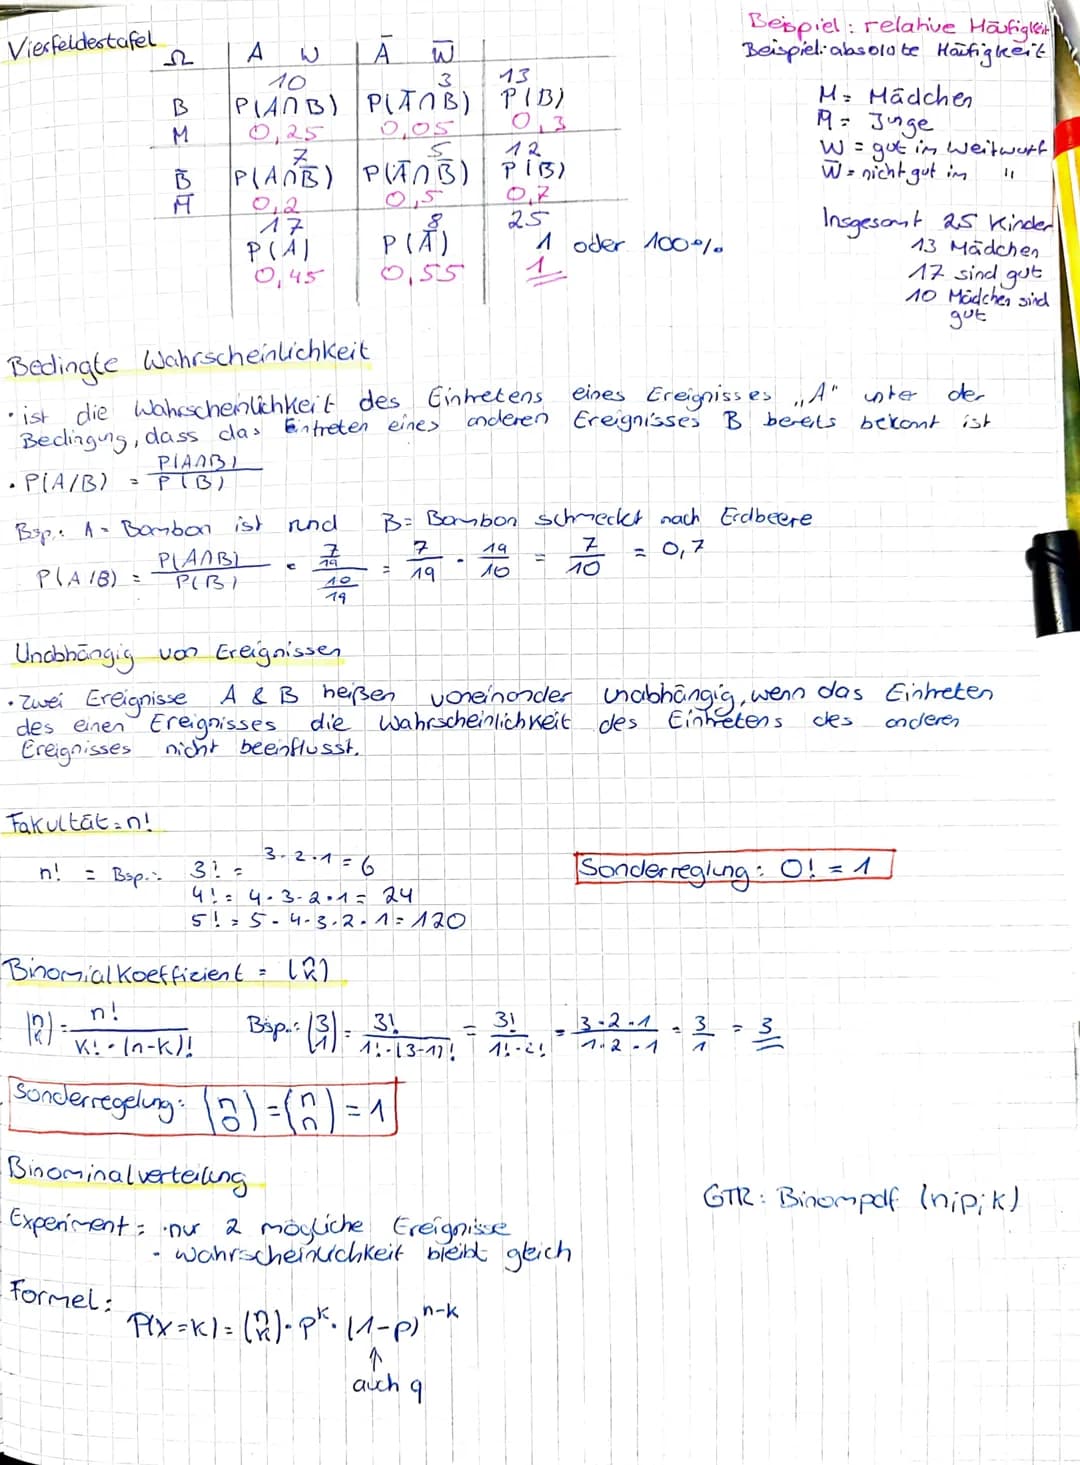 Vierfeldestafel
Beispiel: relative Häufigkeit
Beispiel: absolute Häufigkeit
Ω A W Ā W̄
10 3 13
B P(A∩B) P(Ā∩B) P(B)
M 0,25 0,05 0,3
7 5 12
B̄ P(A∩B̄) P(Ā∩B̄) P(B̄)
M̄ 0,2 0,5 0,7
17 8 25
P(A) P(Ā) 1 oder 100%
0,45 0,55 1
M = Mädchen
M̄ = Junge
W = gut im Weitwurf
W̄ = nicht gut im "
Insgesamt 25 Kinder
13 Mädchen
17 sind gut
10 Mädchen sind
gut
Bedingte Wahrscheinlichkeit
· ist die Wahrscheinlichkeit des Eintretens eines Ereignisses „A" unter der
Bedingung, dass das Eintreten eines anderen Ereignisses B bereits bekannt ist
· P(A/B) = P(A∩B) / P(B)
Bsp.: A = Bombon ist rund B = Bombon schmeckt nach Erdbeere
P(A/B) = P(A∩B) / P(B) = 7/19 / 10/19 = 7/19 · 19/10 = 7/10 = 0,7
Unabhängig von Ereignissen
· Zwei Ereignisse A & B heißen voneinander unabhängig, wenn das Eintreten
des einen Ereignisses die Wahrscheinlichkeit des Eintretens des anderen
Ereignisses nicht beeinflusst.
Fakultät = n!
n! = Bsp.: 3! = 3·2·1 = 6
4! = 4·3·2·1 = 24
5! = 5·4·3·2·1 = 120
Sonderreglung: 0! = 1
Binomialkoeffizient = (n k)
(n k) = n! / k!·(n-k)! Bsp.: (3 1) = 3! / 1!·(3-1)! = 3! / 1!·2! = 3·2·1 / 1·2·1 = 3/1 = 3
Sonderregelung: (n 0) = (n n) = 1
Binominalverteilung
GTR: Binompdf (n;p;k)
Experiment: · nur 2 mögliche Ereignisse
· Wahrscheinlichkeit bleibt gleich
Formel:
P(X=k) = (n k) · p^k · (1-p)^n-k
↑
auch q